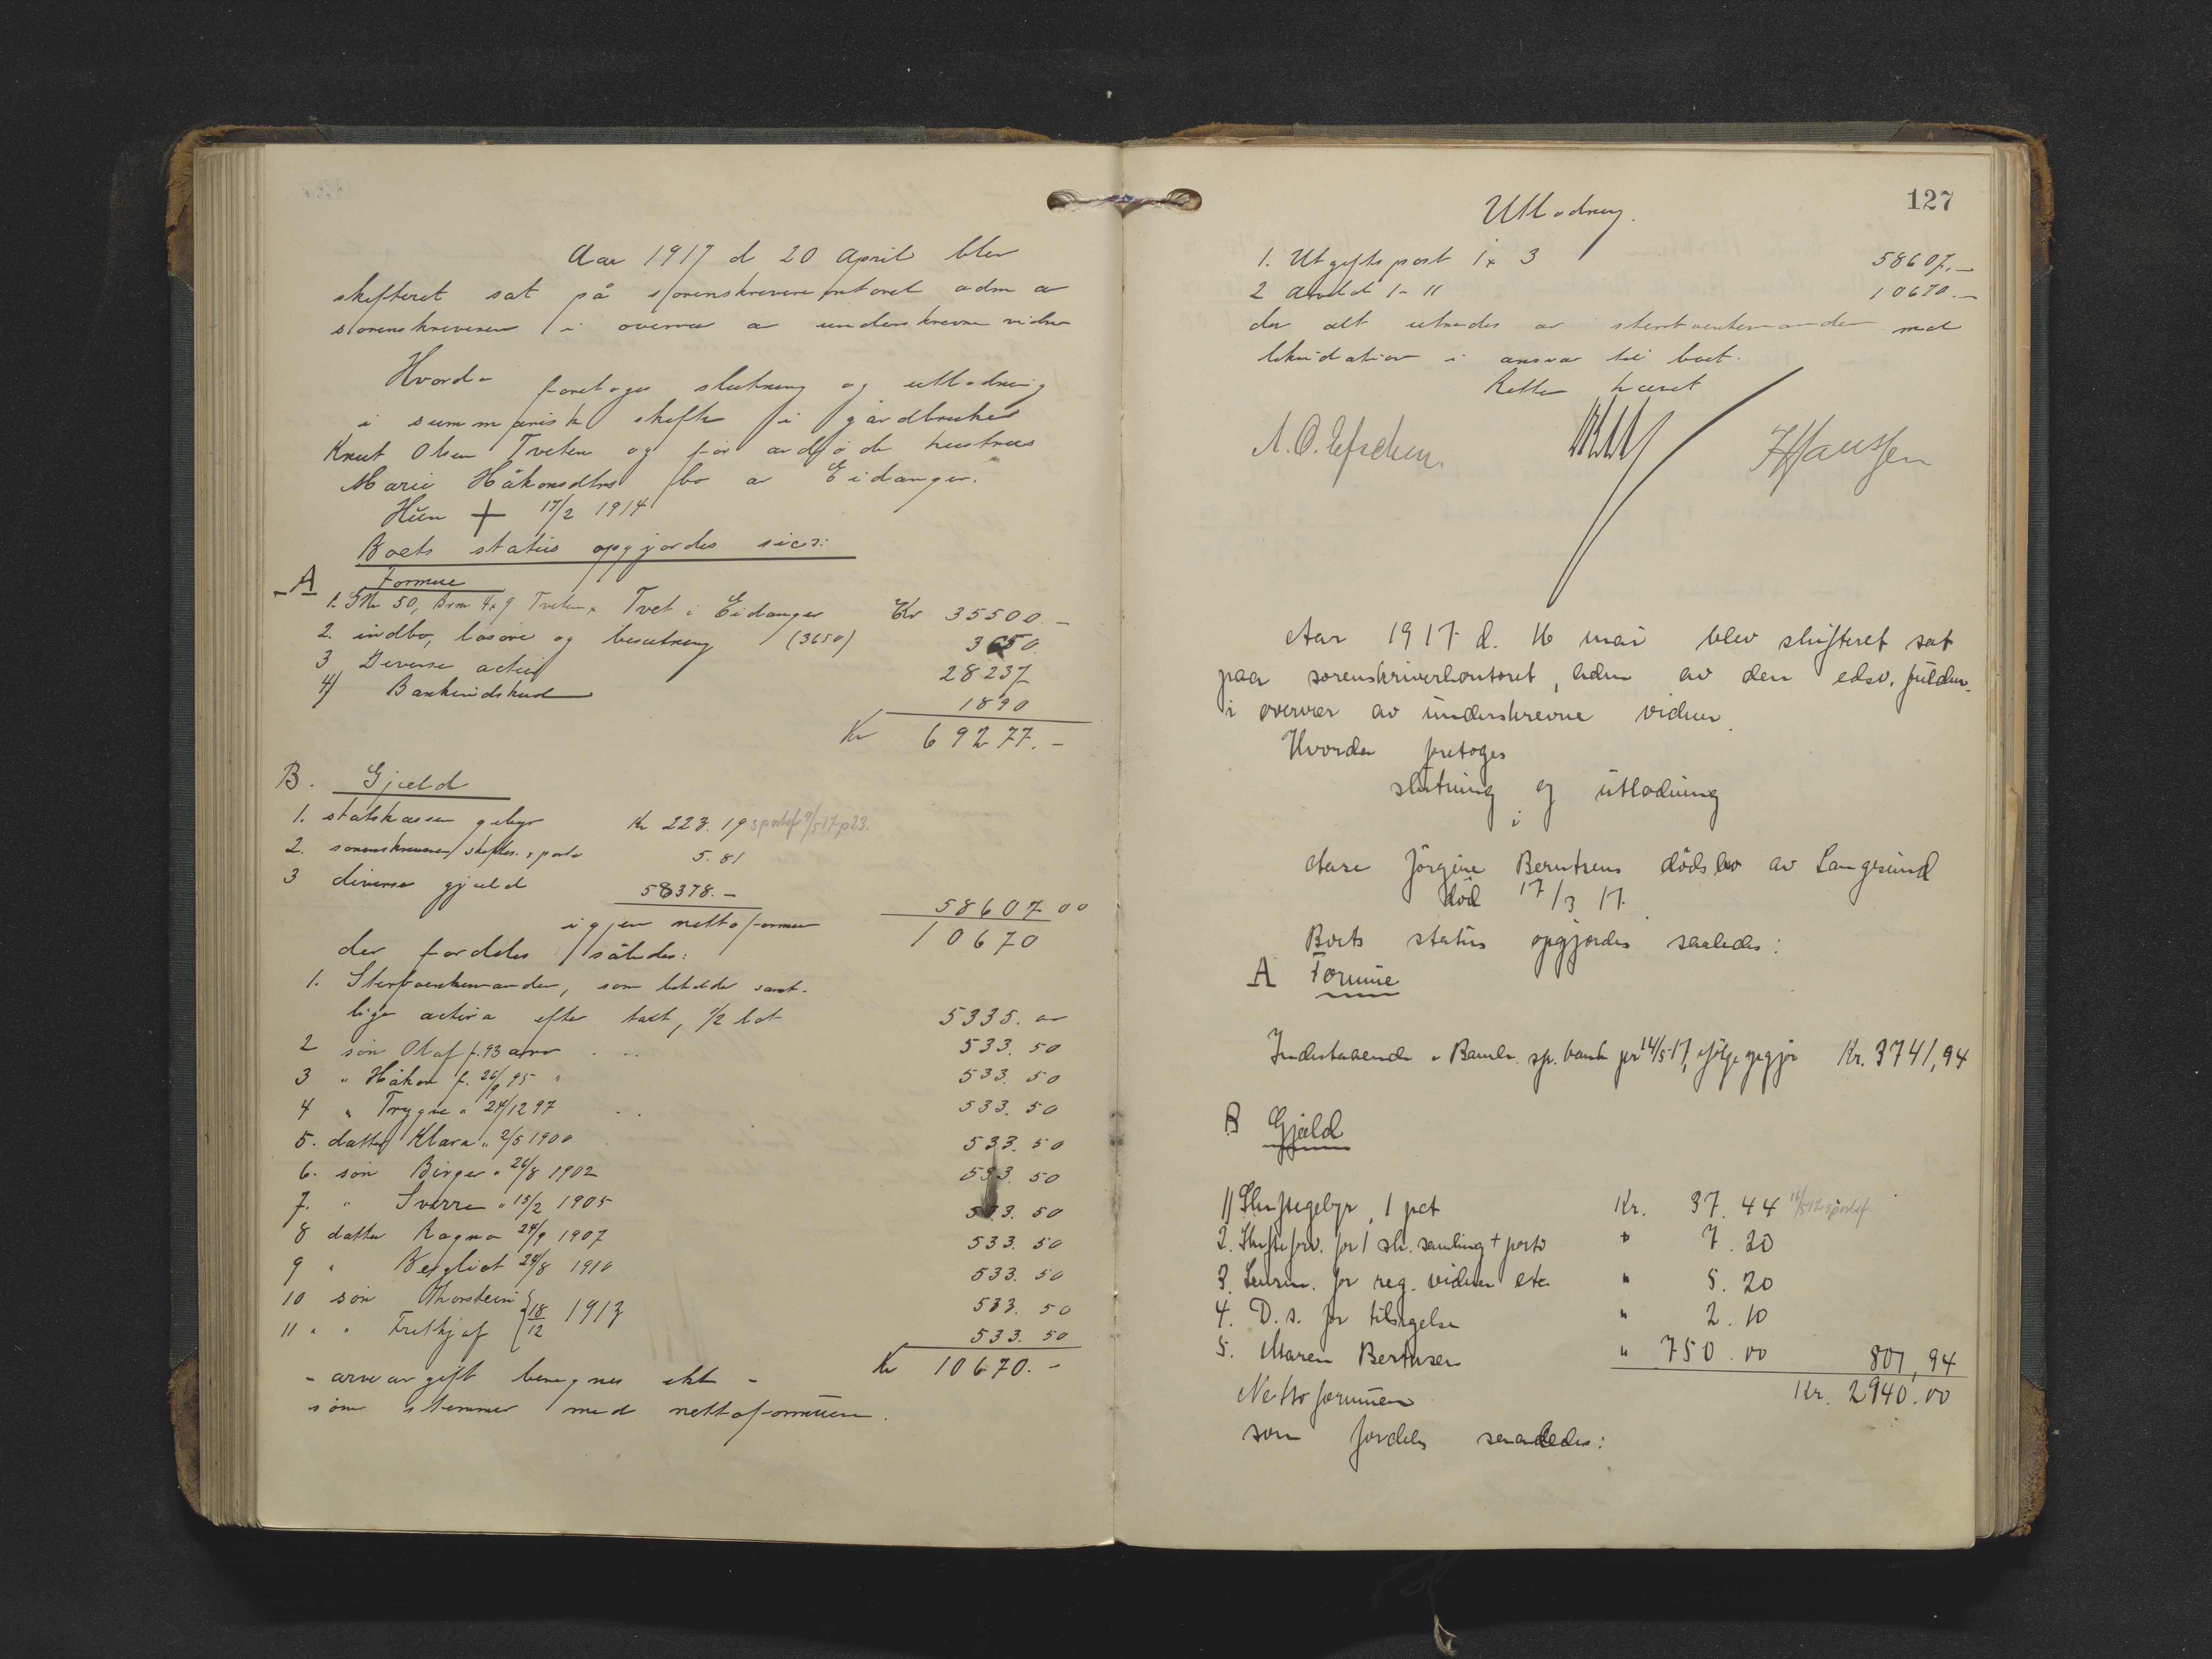 Aar 1917 d 20 April blev
skifteret sat på sorenskriverkontoret adm av
sorenskriveren i overvær av underskrevne vidner
Hvorda foretoges slutning og utlodning
i summarisk skifte i gårdbruker
Knut Olsen Tveten og før avdøde hustrus
Marie Håkonsdtrs bo av Eidanger.
Hun + 17/2 1914
Boets status opgjordes sies:
A Formue
1. GNr 50, Brn 4 & 9 Tveten & Tvet i Eidanger Kr 35500.-
2. indbo, løsøre og besetning (3650) 3650.
3 Diverse activa 28237
4) Bankindskud 1890
Kr 69277.-
B. Gjæld
1. statskassen gebyr Kr 223.19 sportef 9/5 17 p23.
2. sorenskriveren skiftes. & porto 5.81
3 diverse gjæld 58378.-
58607 00
igjen nettoformue 10670
der fordeles således:
1. Sterfboenkemanden, som beholder samt-
lige activa efter taxt, 1/2 lot 5335. oo
2 søn Olaf f. 93 arv .. 533. 50
3 " Håkon f. 26/9 95 " 533. 50
4 " Trygve " 24/12 97 .. 533. 50
5. datter Klara " 2/5 1900 533. 50
6. søn Birger " 26/8 1902 533. 50
7. " Sverre " 15/2 1905 533. 50
8 datter Ragna 24/9 1907 533. 50
9 " Bergliot 24/8 1910 533. 50
10 søn Thorstein 533. 50
11 " " Frithjof { 18/12 1913 533. 50
Kr 10670.-
- arveavgift beregnes ikke -
som stemmer med nettoformuen.
127
Utlodning.
1. Utgiftspost 1 & 3 58607.-
2 Arvelod 1-11 10670.-
der alt utredes av sterfboenkemanden med
likvidation i ansvar til boet.
Retten hævet
J Hanssen
Aar 1917 d. 16 mai blev skifteret sat
paa sorenskriverkontoret, adm av den edsv. fuldm.
i overvær av underskrevne vidner.
Hvorda foretoges
slutning og utlodning
i
Aare Jörgine Berntsens dödsbo av Langesund
död 17/3 17.
Boets status opgjordes saaledes:
A Formue
Indestaaende i Bamle sp. bank pr 14/5-17, ifølge opgjör Kr. 3741,94
B Gjæld
1) Skiftegebyr, 1 pct Kr. 37.44 16/5 17 sportef.
2. Skifteforv. for 1 sk. samling + porto " 7.20
3. Lensm. for reg. vidner etc " 5.20
4. D.s. for tilsigelse " 2.10
5. Maren Berntsen " 750.00 801,94
Netto formuen Kr. 2940.00
som fordeles saaledes: